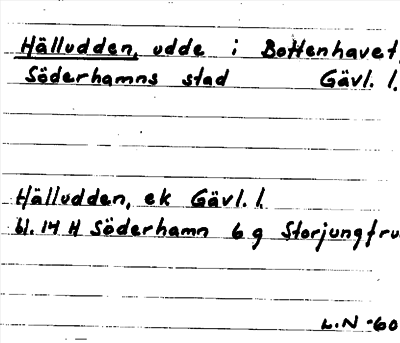 Hälludden, udde i Bottenhavet,
Söderhamns stad Gävl. l.
Hälludden, ek Gävl. l.
bl. 14 H Söderhamn 6 g Storjungfru
L.N -60